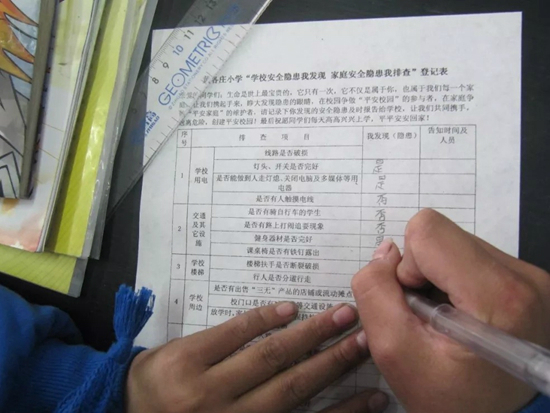 各庄小学“学校安全隐患我发现 家庭安全隐患我排查”登记表
同学们，生命是世上最宝贵的，它只有一次，它不仅是属于你，也属于我们每一个家
庭。让我们携起手来，睁大发现隐患的眼睛，在校园争做“平安校园”的参与者，在家庭争
“平安家庭”的维护者，请记录下你发现的安全隐患及时报告给学校，让我们共同携手，
远离危险，创建平安校园！最后祝愿同学们每天高高兴兴上学，平平安安回家！
序号 排 查 项 目 我发现（隐患） 告知时间及人员
1 学校用电 线路是否破损
灯头、开关是否完好 是
是否能做到人走灯熄、关闭电脑及多媒体等用电器 是
是否有人触摸电线 否
2 交通及其它设施 是否有骑自行车的学生 否
是否有路上打闹追耍现象 否
健身器材是否完好
课桌椅是否有铁钉露出
3 学校楼梯 楼梯扶手是否断裂破损
行人是否分道行走
4 学校周边 是否有出售“三无”产品的店铺或流动摊点
校门口是否有
交通设
放学时，
8 9 10 11 12 13
GEOMETRIC